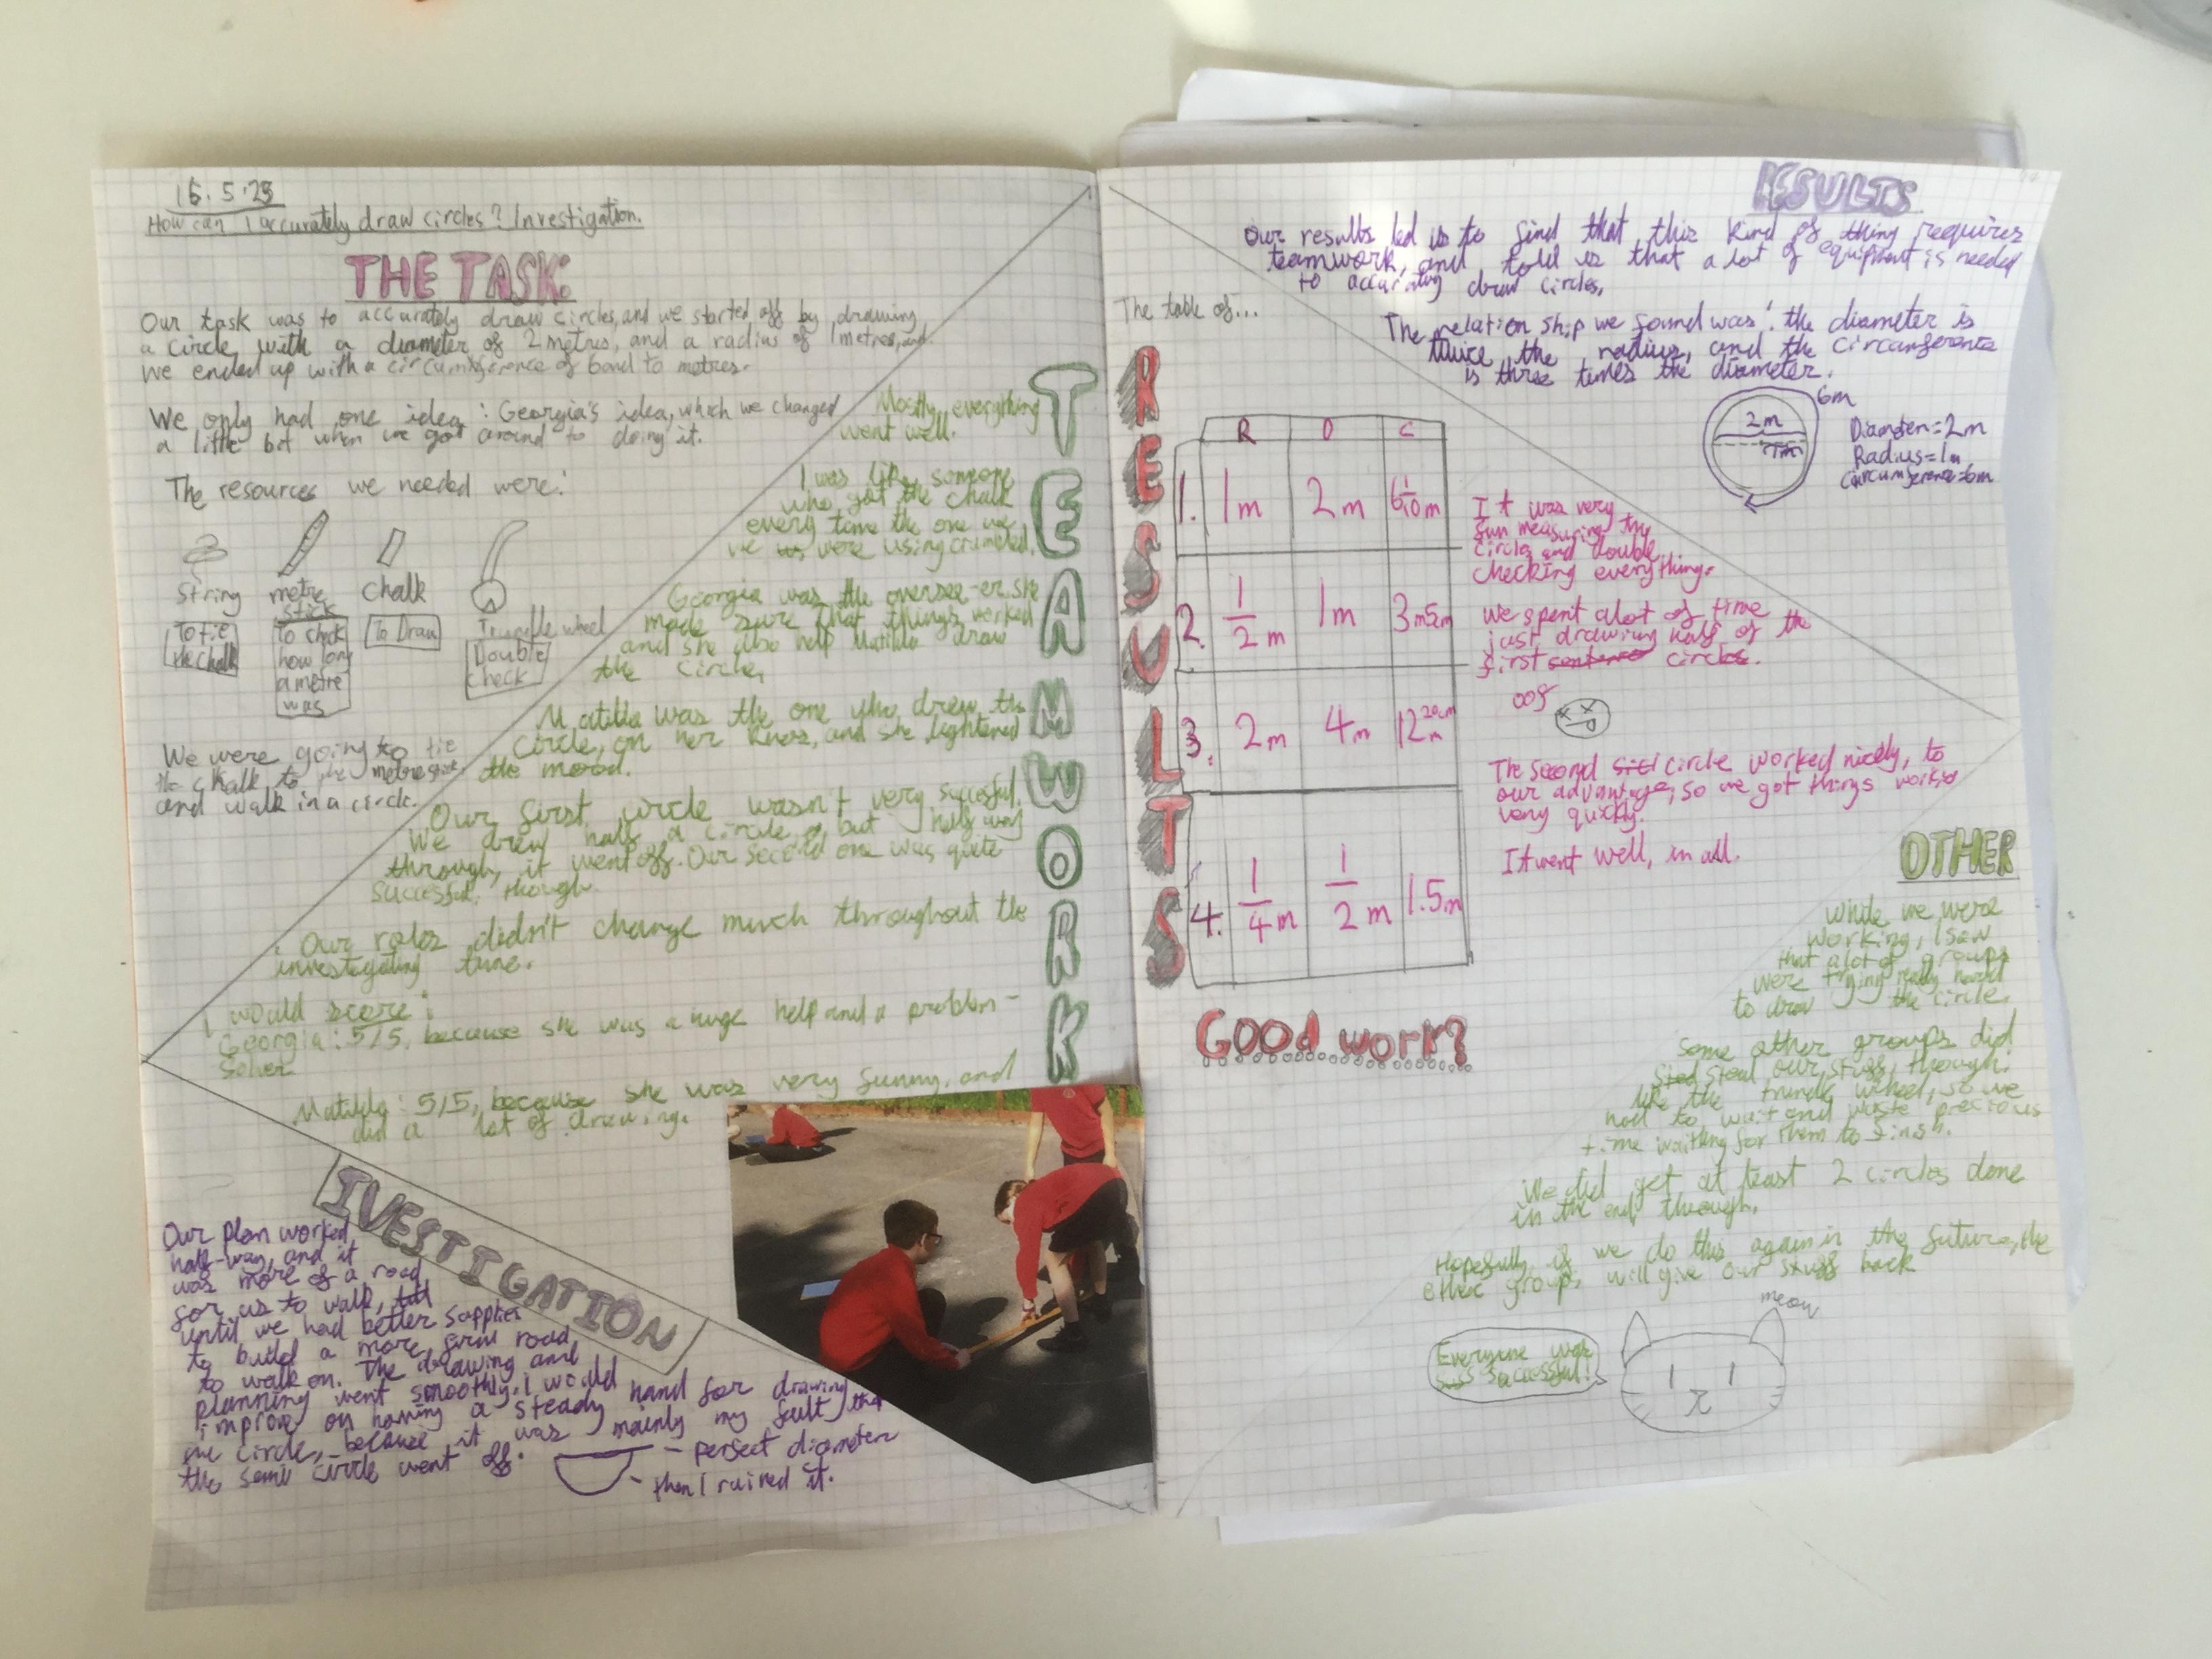 15.5.23
How can I accurately draw circles? Investigation.
THE TASK:
Our task was to accurately draw circles, and we started off by drawing
a circle with a diameter of 2 metres, and a radius of 1 metres, and
we ended up with a circumference of bond to metres.
We only had one idea: Georgia's idea, which we changed
a little bit when we got around to doing it.
The resources we needed were:
String
metre
stick
Chalk
Trundle wheel
To tie
the chalk
To check
how long
a metre
was
To Draw
Double
check
We were going to tie
the chalk to the metre stick
and walk in a circle.
TEAMWORK
Mostly, everything
went well.
I was like someone
who got the chalk
every time the one we
we were using crumbled.
Georgia was the oversee-er, she
made sure that things worked
and she also help Matilda draw
the circle.
Matilda was the one who drew the
circle, on her knees, and she lightened
the mood.
Our first circle wasn't very succesful.
We drew half a circle, but half way
through, it went off. Our second one was quite
successful, though.
Our roles didn't change much throughout the
investigating time.
I would score:
Georgia: 5/5, because she was a huge help and a problem-
solver
Matilda: 5/5, because she was very funny, and
did a lot of drawing.
IVESTIGATION
Our plan worked,
half-way, and it
was more of a road
for us to walk,
until we had better supplies
to build a more firm road
to walk on. The drawing and
planning went smoothly. I would
improve on having a steady hand for drawing
the circle, because it was mainly my fault that
the semi circle went off.
- perfect diameter
- then I ruined it.
The table of...
RESULTS
R D C
1. 1m 2m 6 1/10 m
2. 1/2 m 1m 3m5cm
3. 2m 4m 12m 20cm
4. 1/4 m 1/2 m 1.5m
GOOD work?
RESULTS
Our results led us to find that this kind of thing requires
teamwork, and told us that a lot of equipment is needed
to accurately draw circles.
The relation ship we found was: the diameter is
twice the radius, and the circumference
is three times the diameter.
6m
2m
1m
Diameter=2m
Radius=1m
Circumference=6m
It was very
fun measuring the
circles and double
checking everything.
We spent alot of time
just drawing half of the
first circle.
oof
The second circle worked nicely, to
our advantage, so we got things worked
very quickly.
It went well, in all.
OTHER
While we were
working, I saw
that alot of groups
were trying really hard
to draw the circle.
Some other groups did
steal our stuff, though,
like the trundle wheel, so we
had to wait and waste precious
time waiting for them to finish.
We did get at least 2 circles done
in the end though.
Hopefully, if we do this again in the future, the
other groups will give our stuff back
meow
Everyone was
successful!